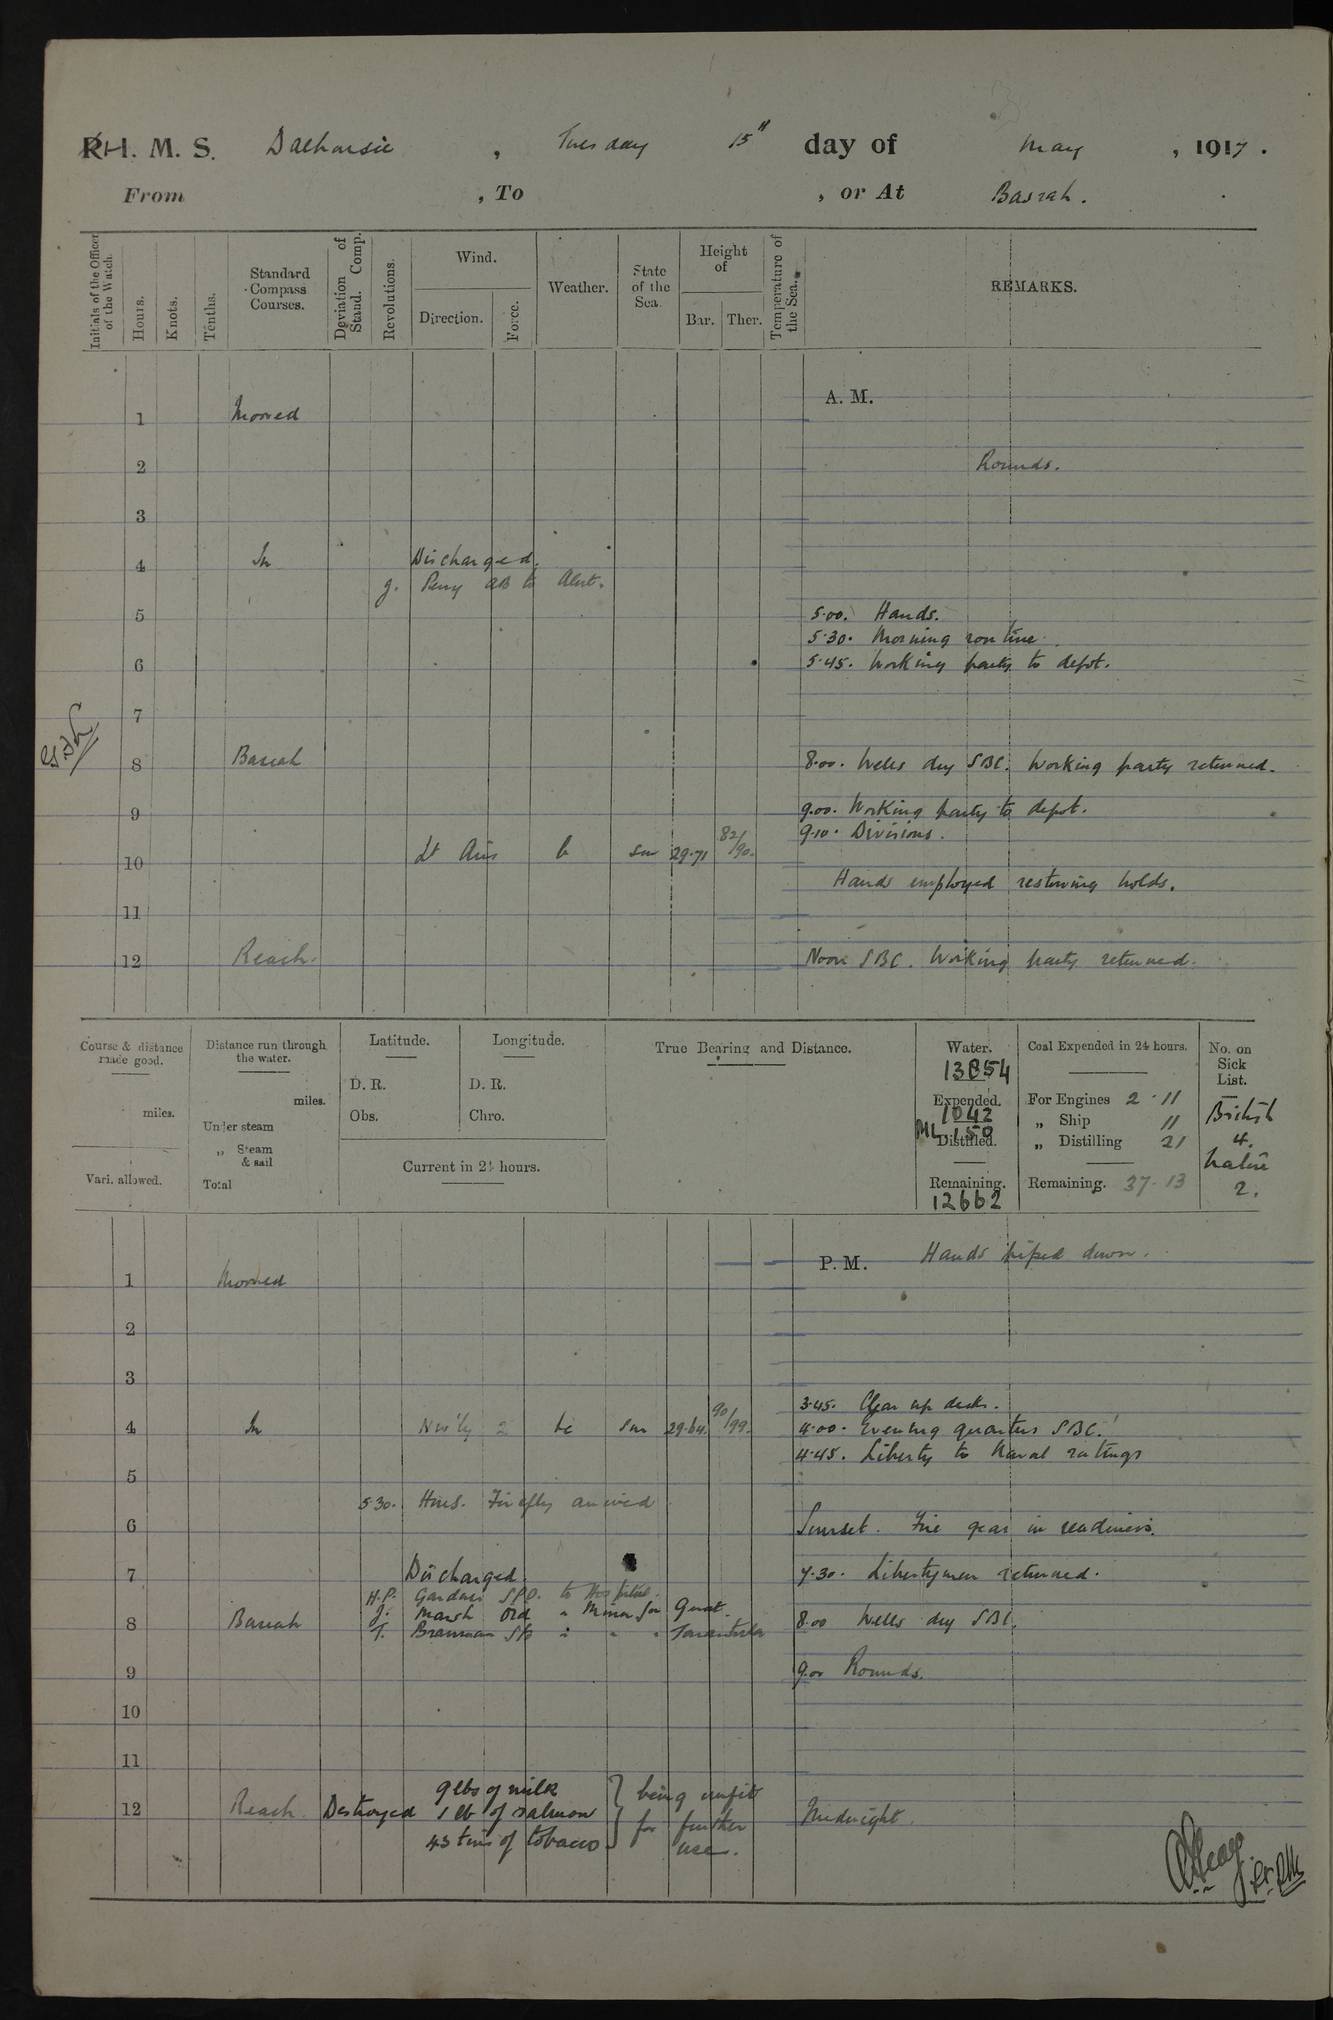 H. M. S. Dalhousie, Tuesday 15th day of May, 1917.
From , To , or At Basrah.
Initials of the Officer of the Watch.
Hours.
Knots.
Tenths.
Standard Compass Courses.
Deviation of Stand. Comp.
Revolutions.
Wind.
Direction.
Force.
Weather.
State of the Sea.
Height of
Bar.
Ther.
Temperature of the Sea.
REMARKS.
A. M.
1 Moored
2 Rounds.
3
4 In Discharged.
J. Perry AB to Alert.
5 5.00. Hands.
5.30. Morning routine.
6 5.45. Working party to depot.
7
8 Basrah 8.00. Wells dry SBC. Working party returned.
9 9.00. Working party to depot.
9.10. Divisions.
10 Lt Airs b sm 29.71 82/90.
Hands employed restowing holds.
11
12 Reach. Noon SBC. Working party returned.
Course & distance made good.
miles.
Vari. allowed.
Distance run through the water.
miles.
Under steam
„ Steam & sail
Total
Latitude.
D. R.
Obs.
Longitude.
D. R.
Chro.
Current in 24 hours.
True Bearing and Distance.
Water.
13854
Expended.
1042
ML 150
Distilled.
Remaining.
12662
Coal Expended in 24 hours.
For Engines 2.11
„ Ship 11
„ Distilling 21
Remaining. 37.13
No. on Sick List.
British
4.
Native
2.
P. M. Hands piped down.
1 Moored
2
3
3.45. Clear up decks.
4 In Nw'ly 2 bc sm 29.64. 90/99. 4.00. Evening quarters SBC.
4.45. Liberty to Naval ratings
5
5.30. H.M.S. Firefly arrived
6 Sunset. Fire gear in readiness.
7 Discharged. 7.30. Libertymen returned.
H.P. Gardner SPO. to Hospital.
J. Marsh Ord " Minor for Gnat.
8 Basrah T. Brannan Sto " " " Tarantula 8.00 Wells dry SBC.
9 9.00 Rounds.
10
11
9 lbs of milk } being unfit
12 Reach Destroyed 1 lb of salmon } for further Midnight.
43 tins of tobacco } use.